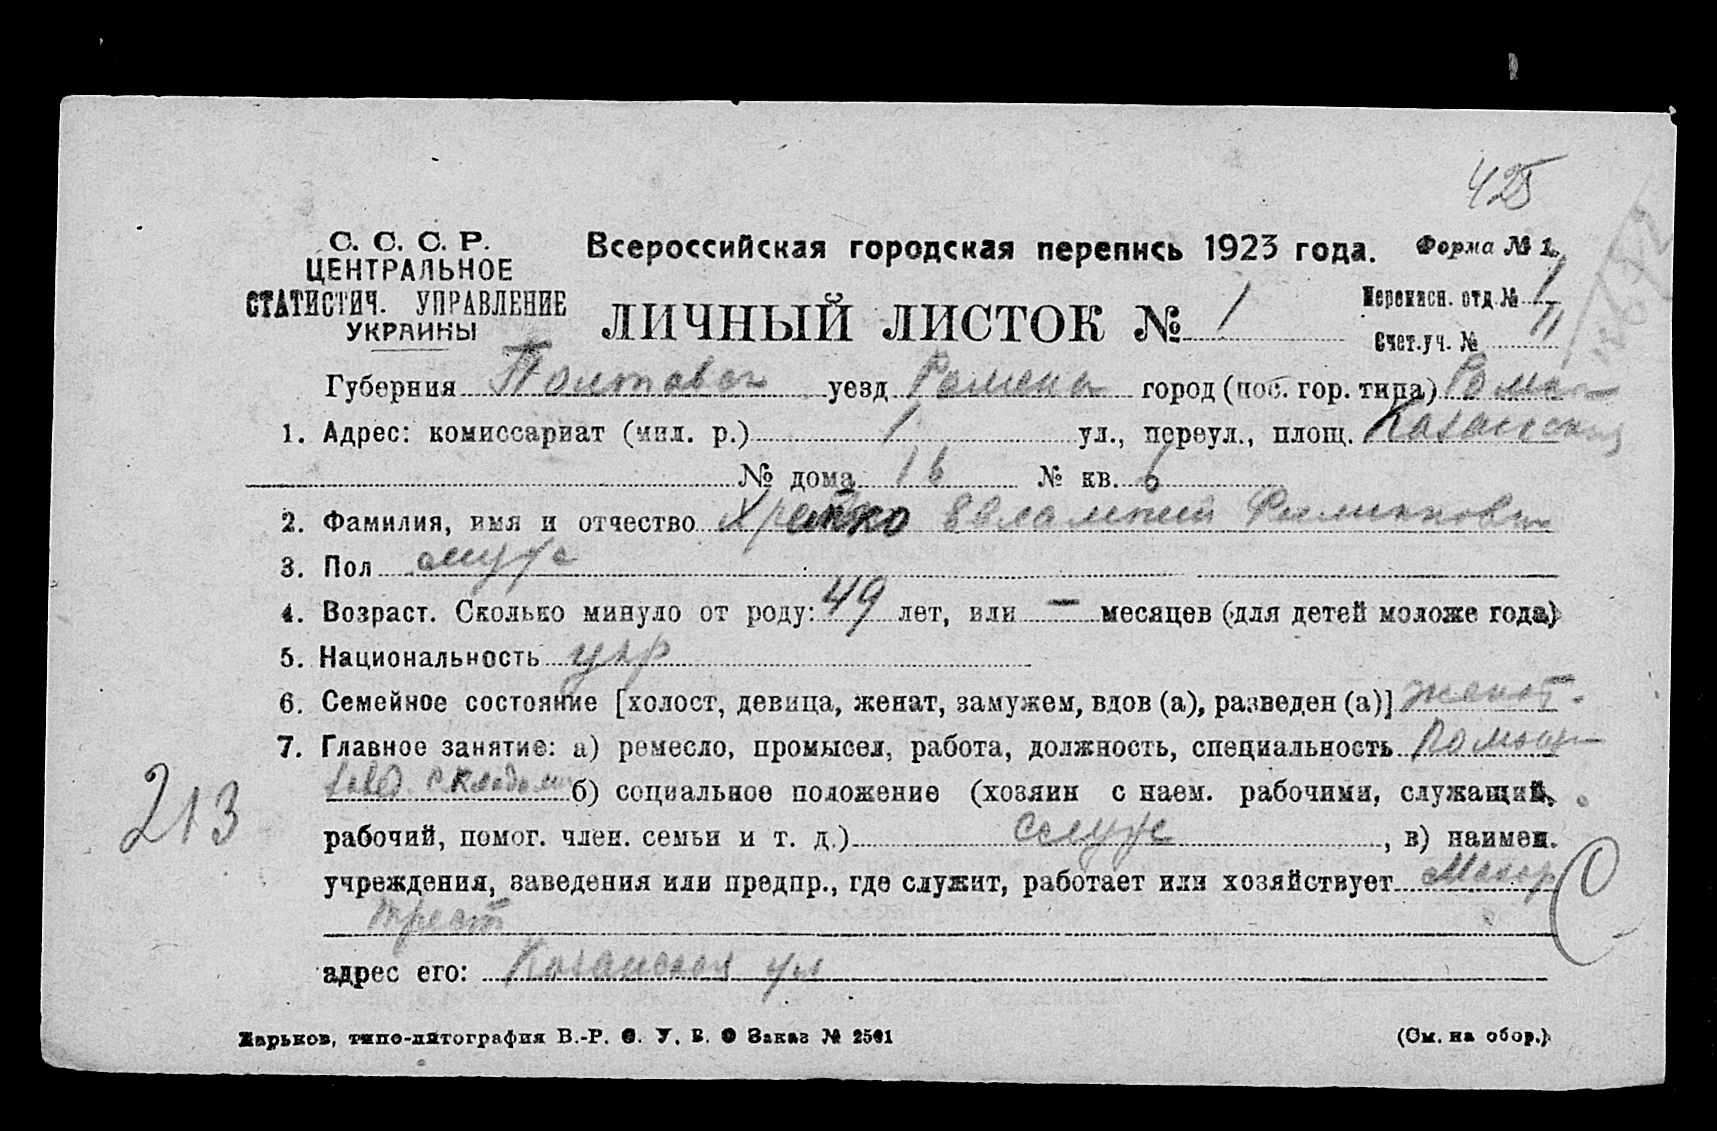 425
С. С. С. Р.
ЦЕНТРАЛЬНОЕ
СТАТИСТИЧ. УПРАВЛЕНИЕ
УКРАИНЫ
Всероссийская городская перепись 1923 года. Форма № 1.
Переписн. отд. № 1
ЛИЧНЫЙ ЛИСТОК № 1
Счет. уч. № 11
Губерния Полтавск уезд Роменск город (пос. гор. типа) Ромны
1. Адрес: комиссариат (мил. р.) 1 ул., переул., площ. Казанская
№ дома 16 № кв. 6
2. Фамилия, имя и отчество Евлампий Филиппович
3. Пол муж
4. Возраст. Сколько минуло от роду: 49 лет, или – месяцев (для детей моложе года)
5. Национальность укр
6. Семейное состояние [холост, девица, женат, замужем, вдов (а), разведен (а)] женат.
7. Главное занятие: а) ремесло, промысел, работа, должность, специальность Помощ
завед. складом б) социальное положение (хозяин с наем. рабочими, служащий,
213
рабочий, помог. член. семьи и т. д.) служ , в) наимен.
учреждения, заведения или предпр., где служит, работает или хозяйствует Махор
трест
адрес его: Казанская ул
Харьков, типо-литография В.-Р. Ф. У. В. О Заказ № 2501 (См. на обор.)